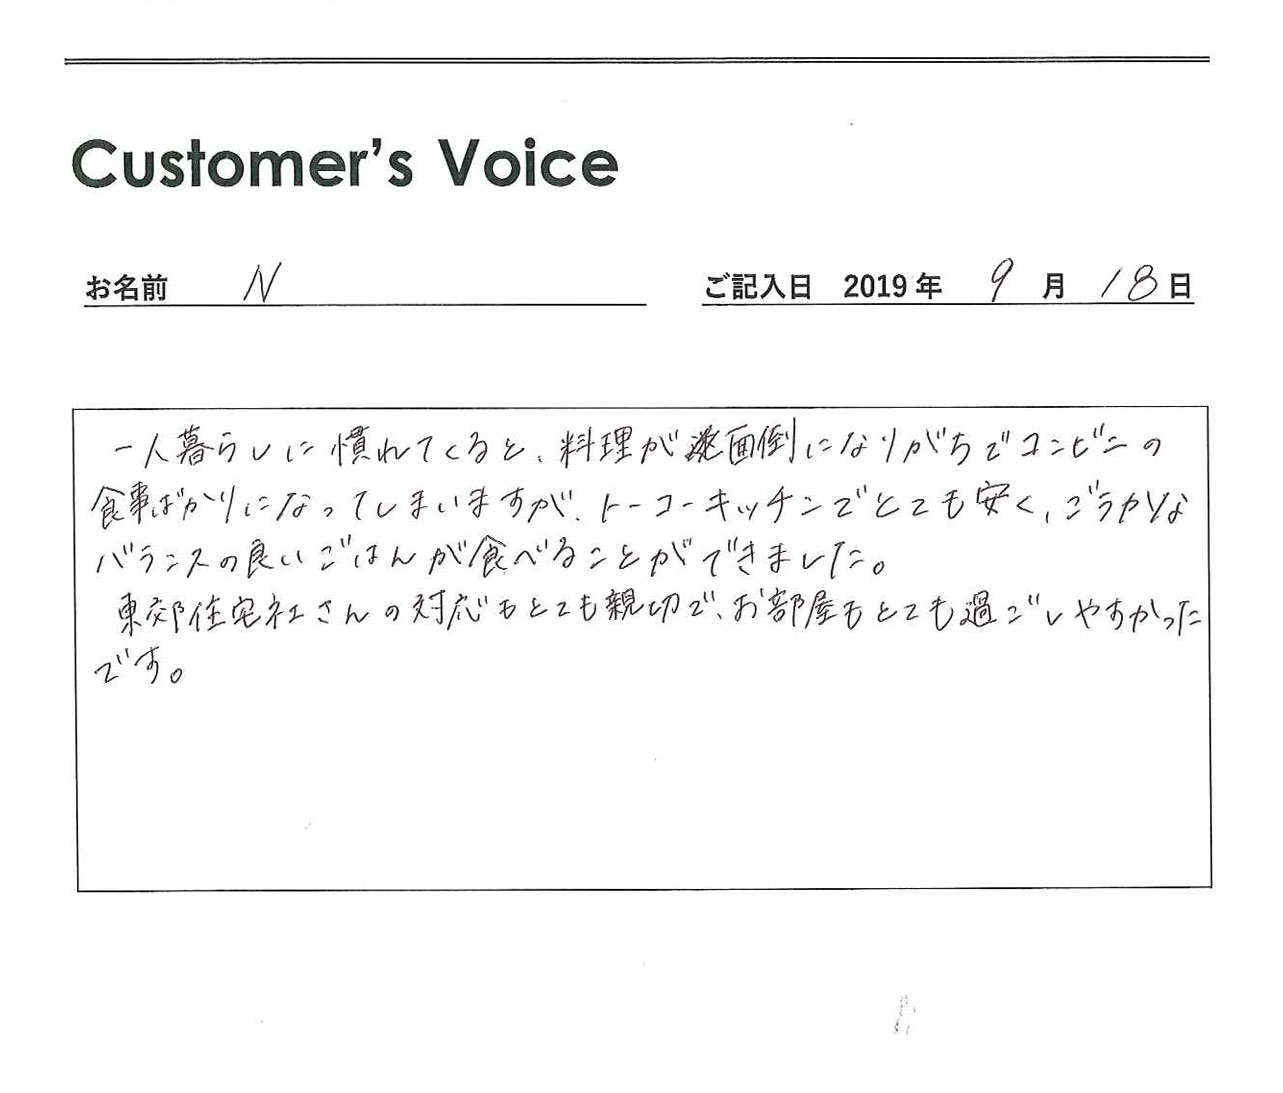 Customer's Voice
お名前 N ご記入日 2019年 9月 18日
一人暮らしに慣れてくると、料理が面倒になりがちでコンビニの
食事ばかりになってしまいますが、トーコーキッチンでとても安く、ごうかな
バランスの良いごはんが食べることができました。
東郊住宅社さんの対応もとても親切で、お部屋もとても過ごしやすかった
です。